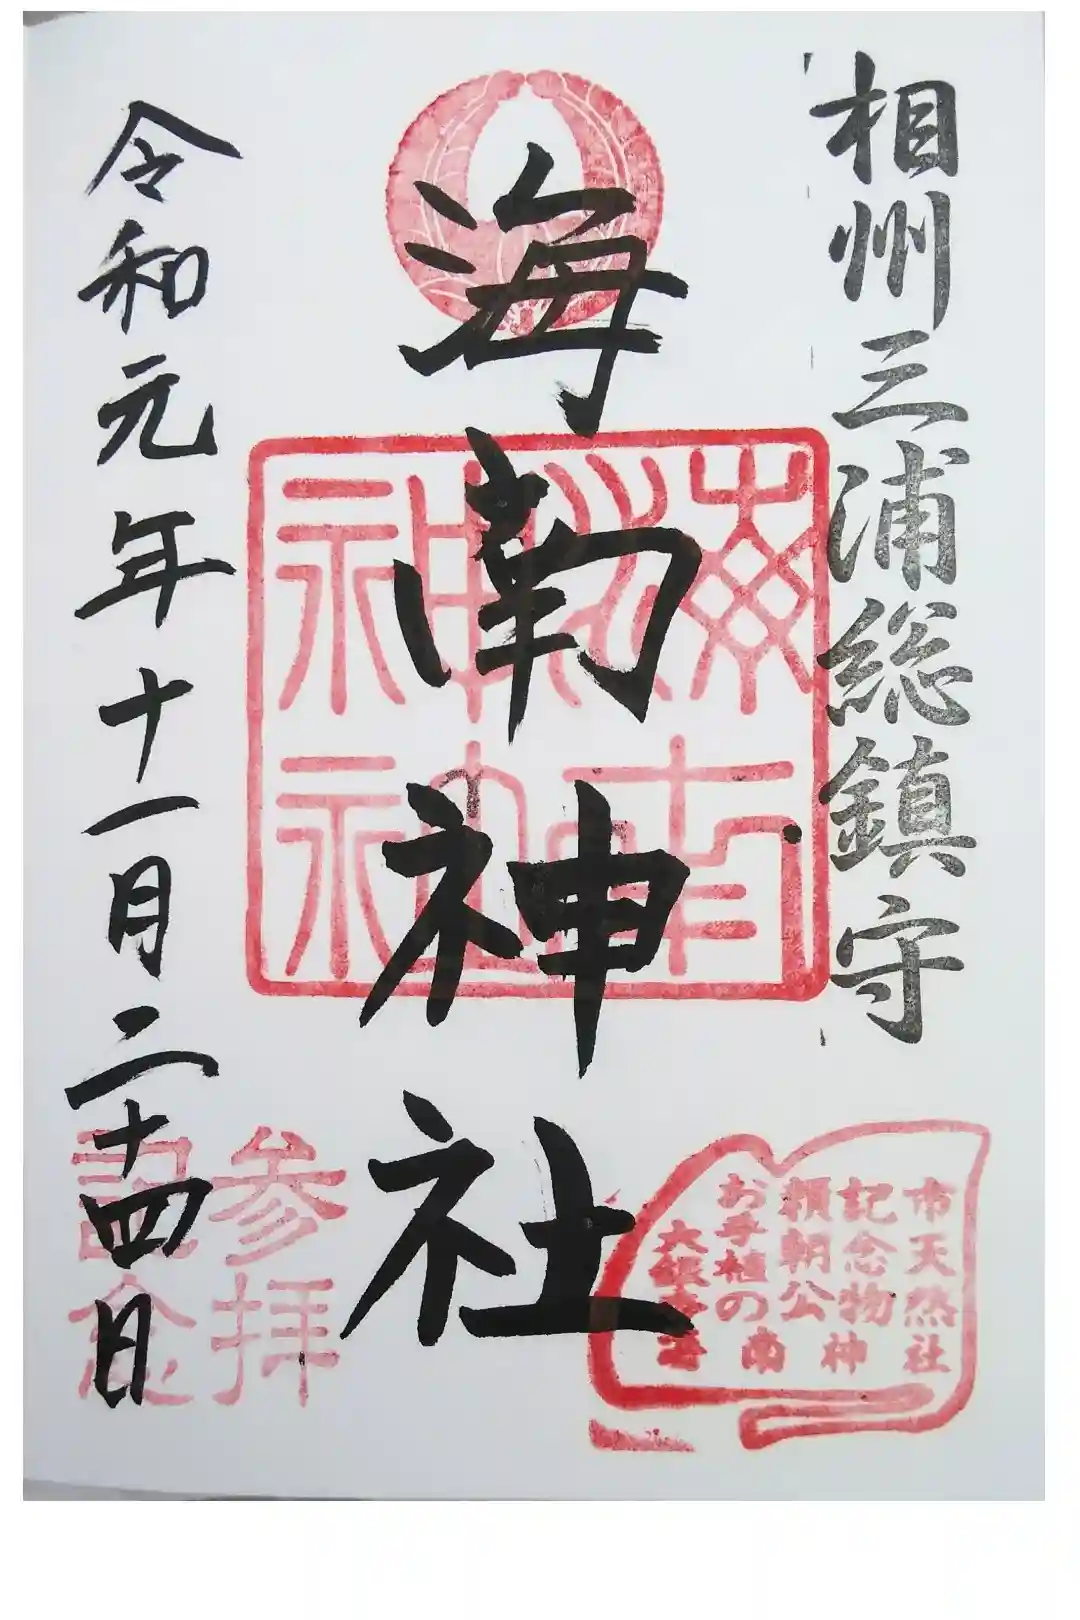 相州三浦総鎮守
海南神社
海南神社
令和元年十一月二十四日
参拝
記念
市天然
記念物
頼朝公
お手植の
大銀杏
海南神社